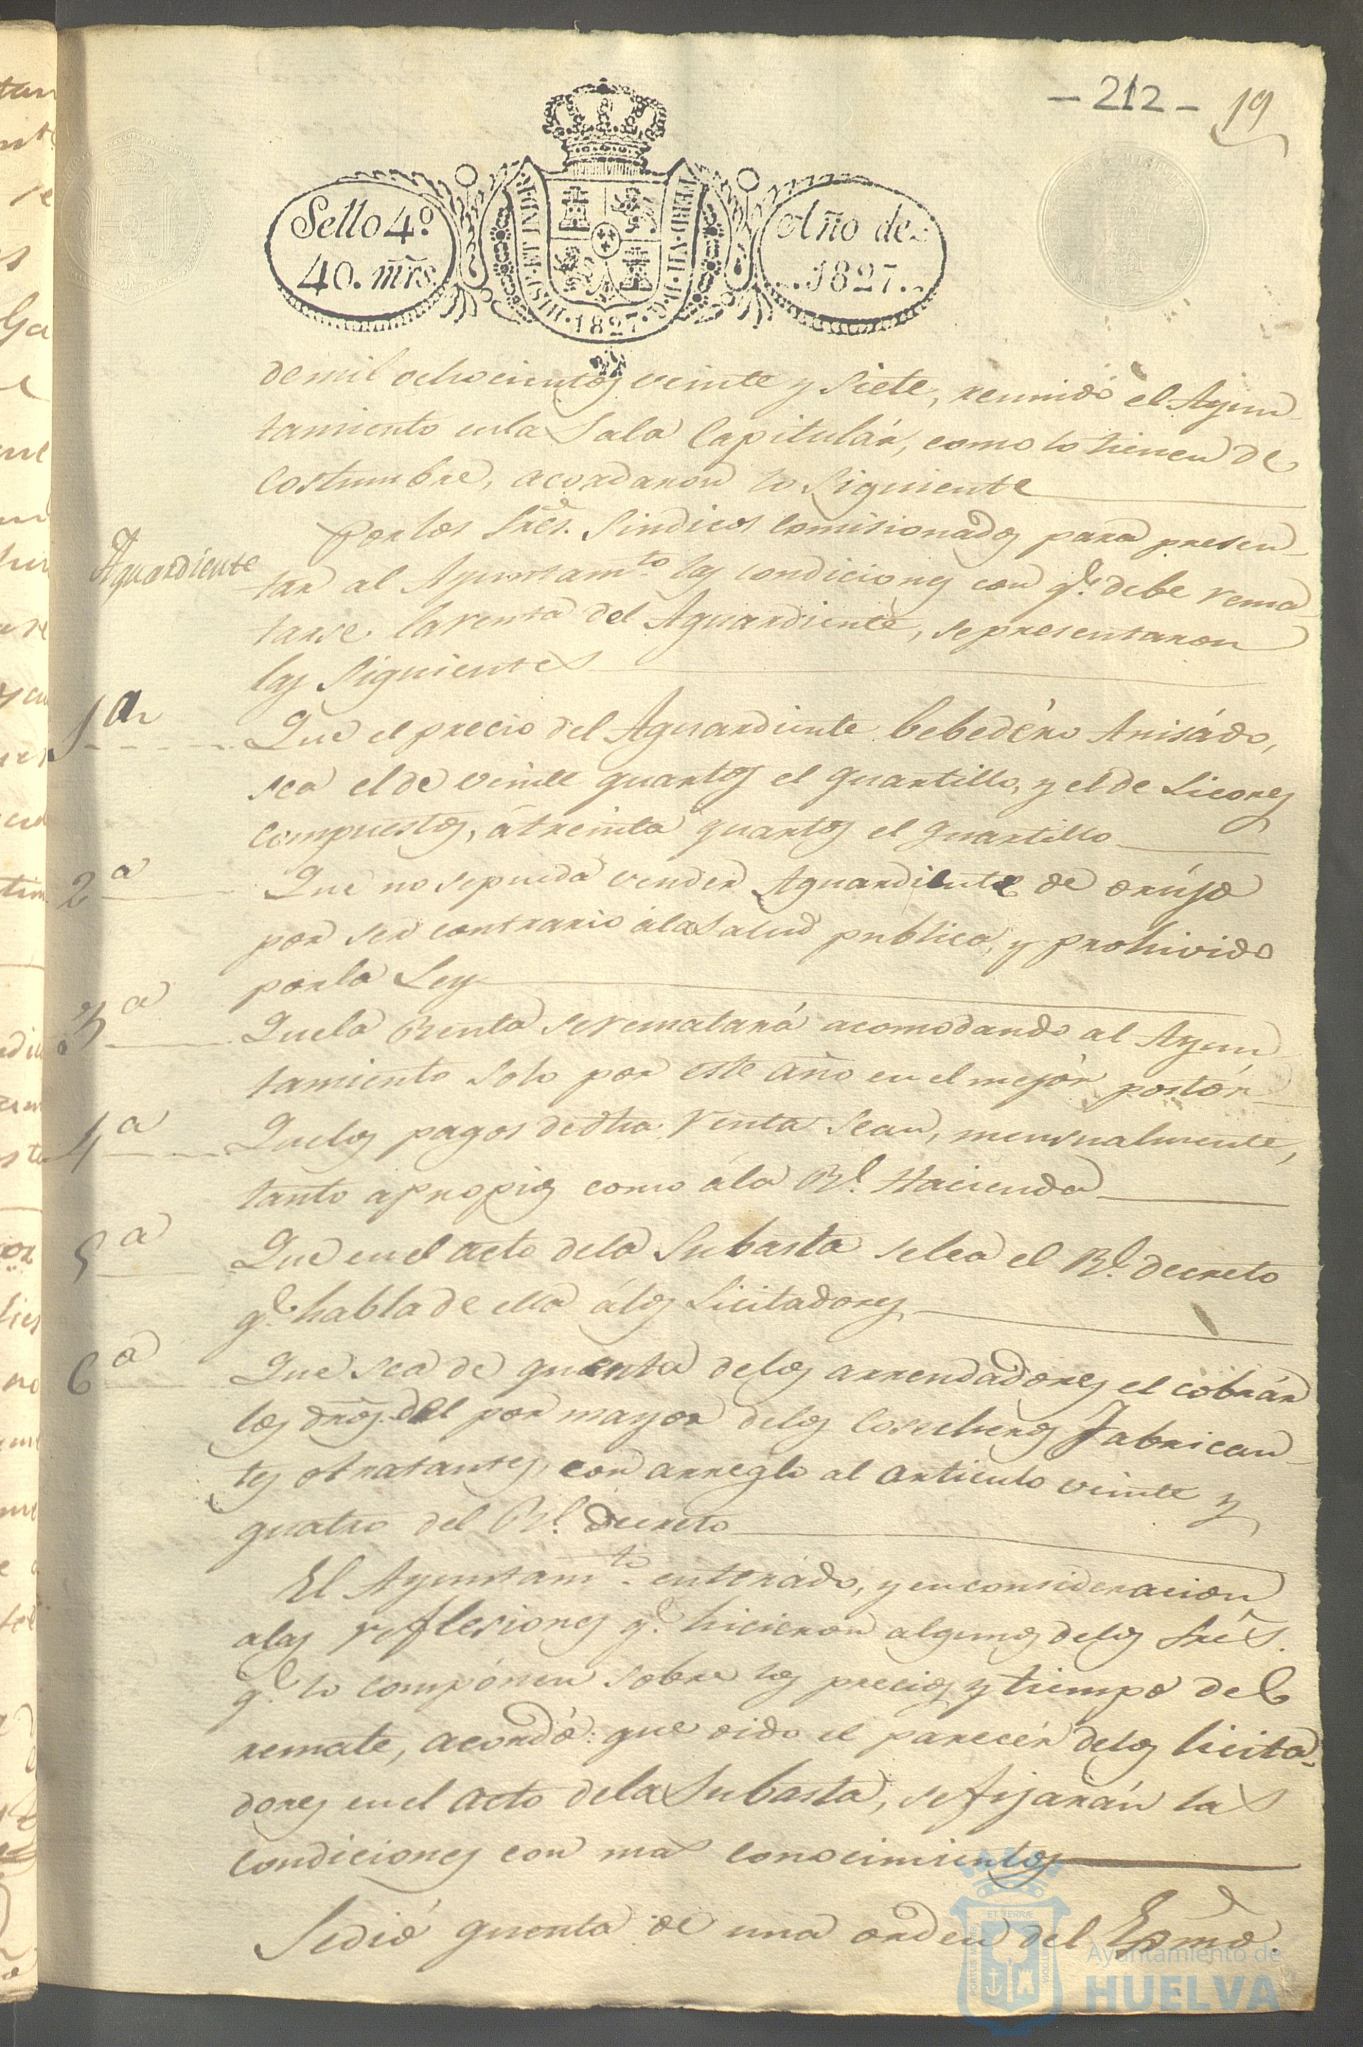 - 212 - 19
Sello 4º.
40. mrs
HISP. ET IND. R.
FERD. VII. D. G.
1827.
Año de
1827.
de mil ochocientos veinte y siete, reunido el Ayun-
tamiento en la Sala Capitulár, como lo tienen de
costumbre, acordaron lo siguiente
Aguardiente
Por los Sres. Sindicos comisionados para presen-
tar al Ayuntamto. las condiciones con qe. debe rema-
tarse la renta del Aguardiente, se presentaron
las siguientes
1ª
Que el precio del Aguardiente bebedéro Anisádo,
sea el de veinte quartos el quartillo, y el de Licores
compuestos, á treinta quartos el quartillo
2ª
Que no se pueda vender Aguardiente de orújo
por ser contrario á la salud publica, y prohivido
por la Ley
3ª
Que la Renta se rematará acomodando al Ayun-
tamiento solo por este año en el mejór postór
4ª
Que los pagos de dha. renta sean, mensualmente,
tanto a propios como á la Rl. Hacienda
5ª
Que en el acto de la Subasta se lea el Rl. decreto
qe. habla de ella á los Licitadores
6ª
Que sea de quenta de los arrendadores el cobrár
los dros. del por mayor de los Cosecheros Fabrican-
tes o tratantes, con arreglo al articulo veinte y
quatro del Rl. decreto
El Ayuntamto. enterádo, y en consideracion
a las reflesiones qe. hicieron algunos de los Sres.
qe. lo compónen sobre los precios y tiempo del
remate, acordó: que oido el parecér de los licita-
dores en el acto de la Subasta, se fijarán las
condiciones con mas conocimientos
Se dió quenta de una orden del Esmo.
Ayuntamiento de
HUELVA